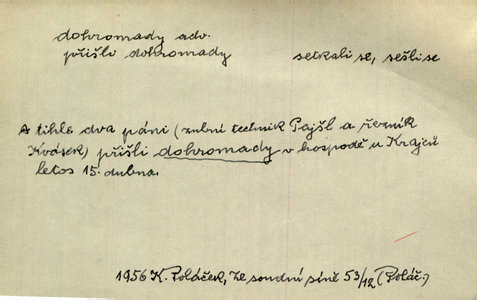 dohromady adv.
přišli dohromady setkali se, sešli se
A tihle dva páni (zubní technik Pajšl a řezník
Kvásek) přišli dohromady v hospodě u Krajců
letos 15. dubna.
1956 K. Poláček, Ze soudní síně 53/12 (Poláč.)